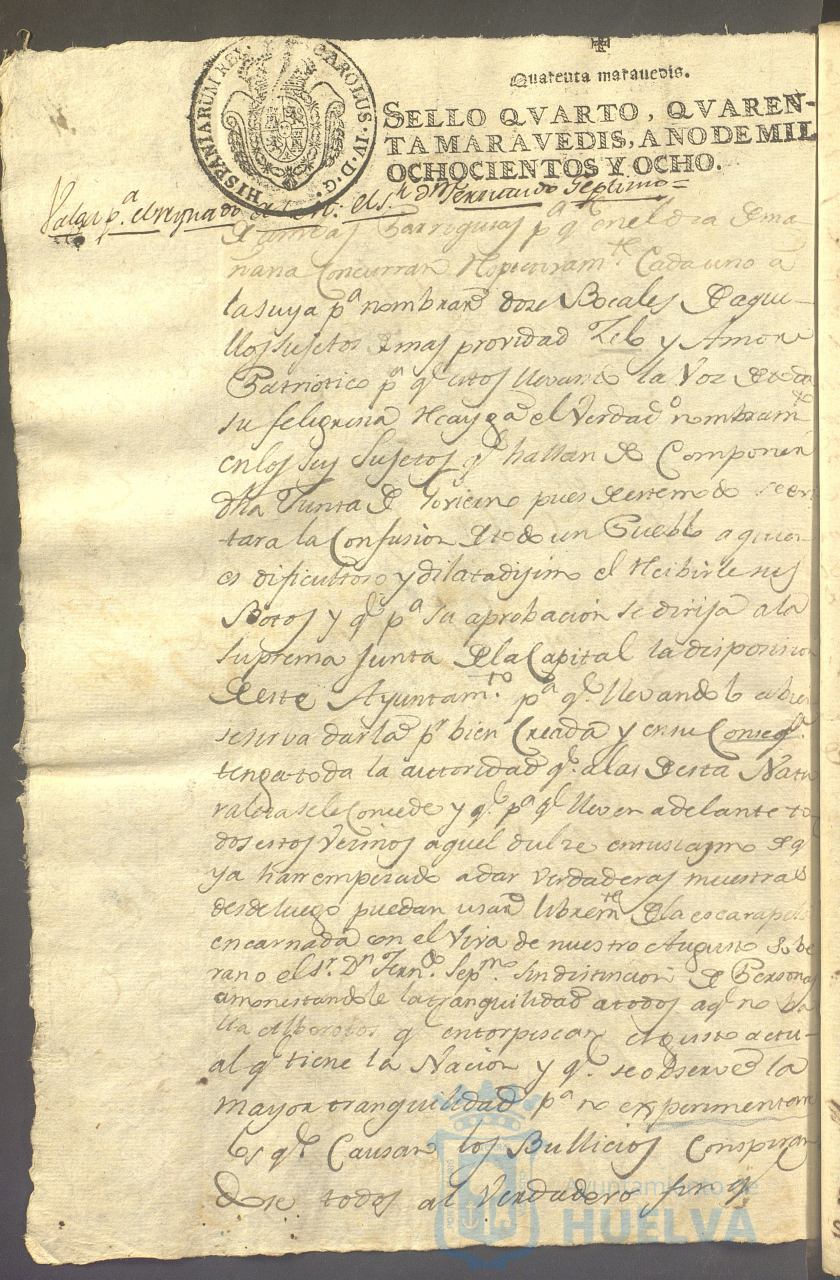 HISPANIARUM REX CAROLUS·IV·D·G·
Quarenta maravedis.
SELLO QVARTO, QVAREN-
TA MARAVEDIS, AÑO DE MIL
OCHOCIENTOS Y OCHO.
Valga pa. el reynado de S.M. el Sr. Dn Fernando Septimo=
Parroquias pa. qe en el dia de ma-
ñana Concurran respectivamte. Cada uno a
la suya pa nombrar doze Bocales de aque-
llos sujetos de mas providad Zelo y Amor
Patriotico pa qe estos llevando la Voz de toda
su feligresia recayga el Verdado nombramto
en los seys Sujetos qe hallan de Componer
dha Junta de Govierno pues de este modo se evi
tara la Confusion de todo un Pueblo a quien
es dificultoso y dilatadisimo el recibirle sus
Botos y qe pa su aprobacion se dirija a la
Suprema Junta de la Capital la disposicion
de este Ayuntamto. pa qe. llevandolo a bien
se sirva darla pr bien Creada y en su Conseqa.
tenga toda la autoridad qe. a las de esta Natu
raleza se le Concede y qe. pa qe lleven adelante to
dos estos Vecinos aquel dulze entusiasmo de q
ya han empezado a dar verdaderas muestras
desde luego puedan usar libremte de la escarapela
encarnada con el Viva de nuestro Augusto Sobe
rano el Sr. Dn Ferno. Sepmo. sin distincion de Personas
amonestandole la tranquilidad a todos a qe no ha
lla Alborotos qe entorpescan el gusto actu-
al qe tiene la Nacion y qe. se observe la
mayor tranquilidad pa no experimentar
los qe Causan los Bullicios Conspiran
dose todos al Verdadero fin qe
Ayuntamiento de
HUELVA